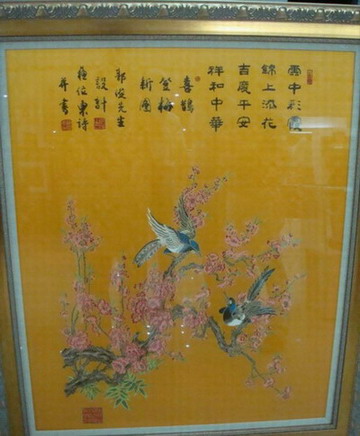 雲中彩霞
錦上添花
吉慶平安
祥和中華
喜鵲
登梅
新圖
郭俊先生
設計
蘇位東詩
并書